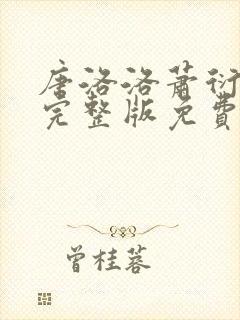 唐洛洛蕭衍
完整版免費
曾桂蓉